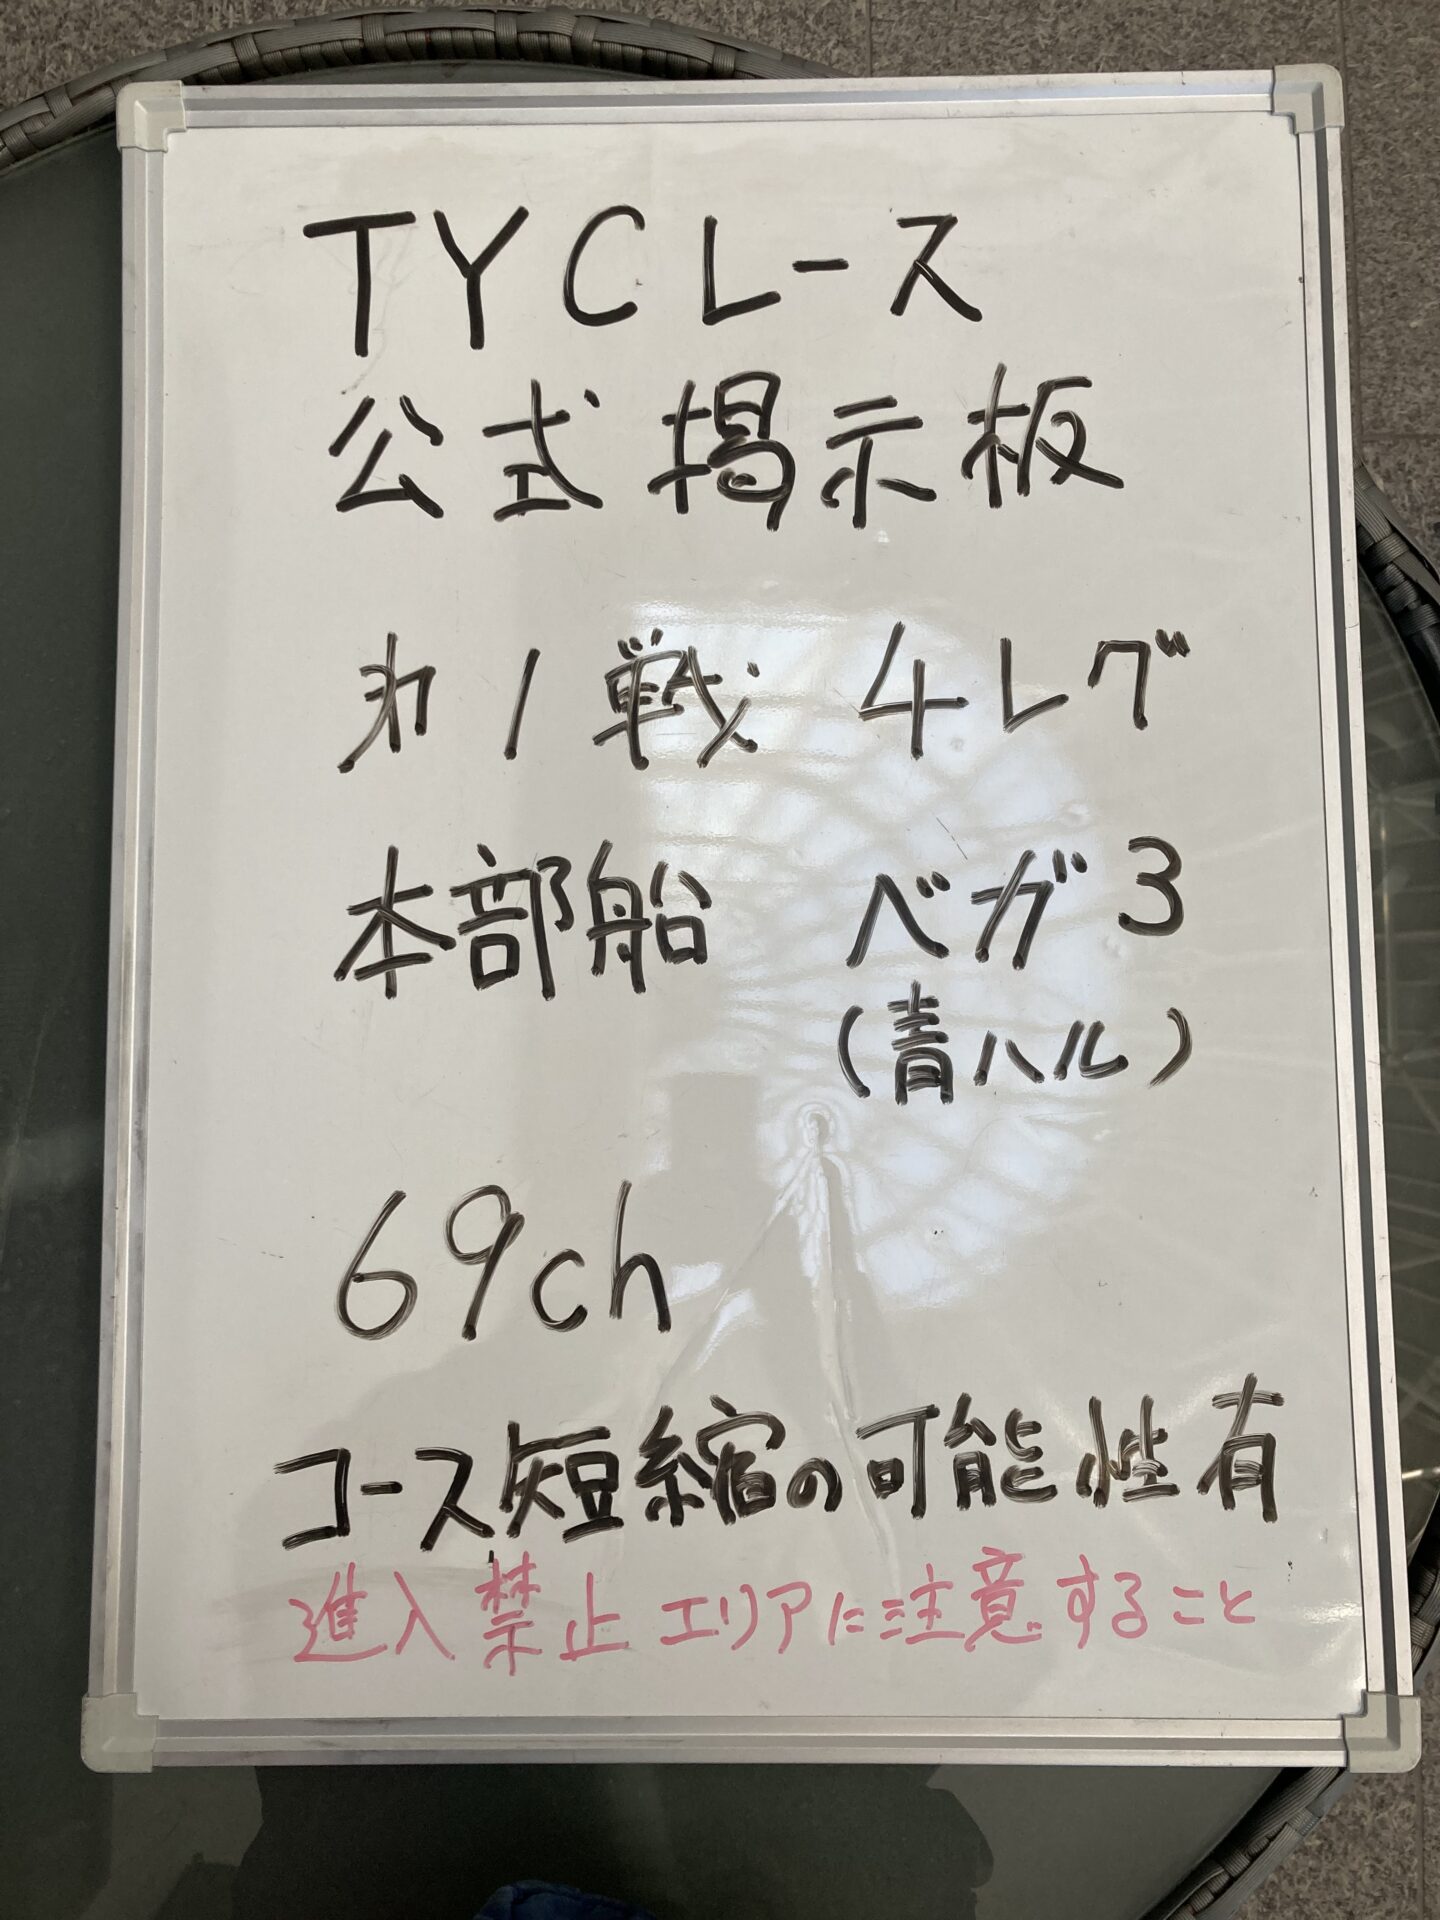 TYCレース
公式掲示板
才1戦 4レグ
本部船 ベガ3
(青ハル)
69ch
コース短縮の可能性有
進入禁止エリアに注意すること